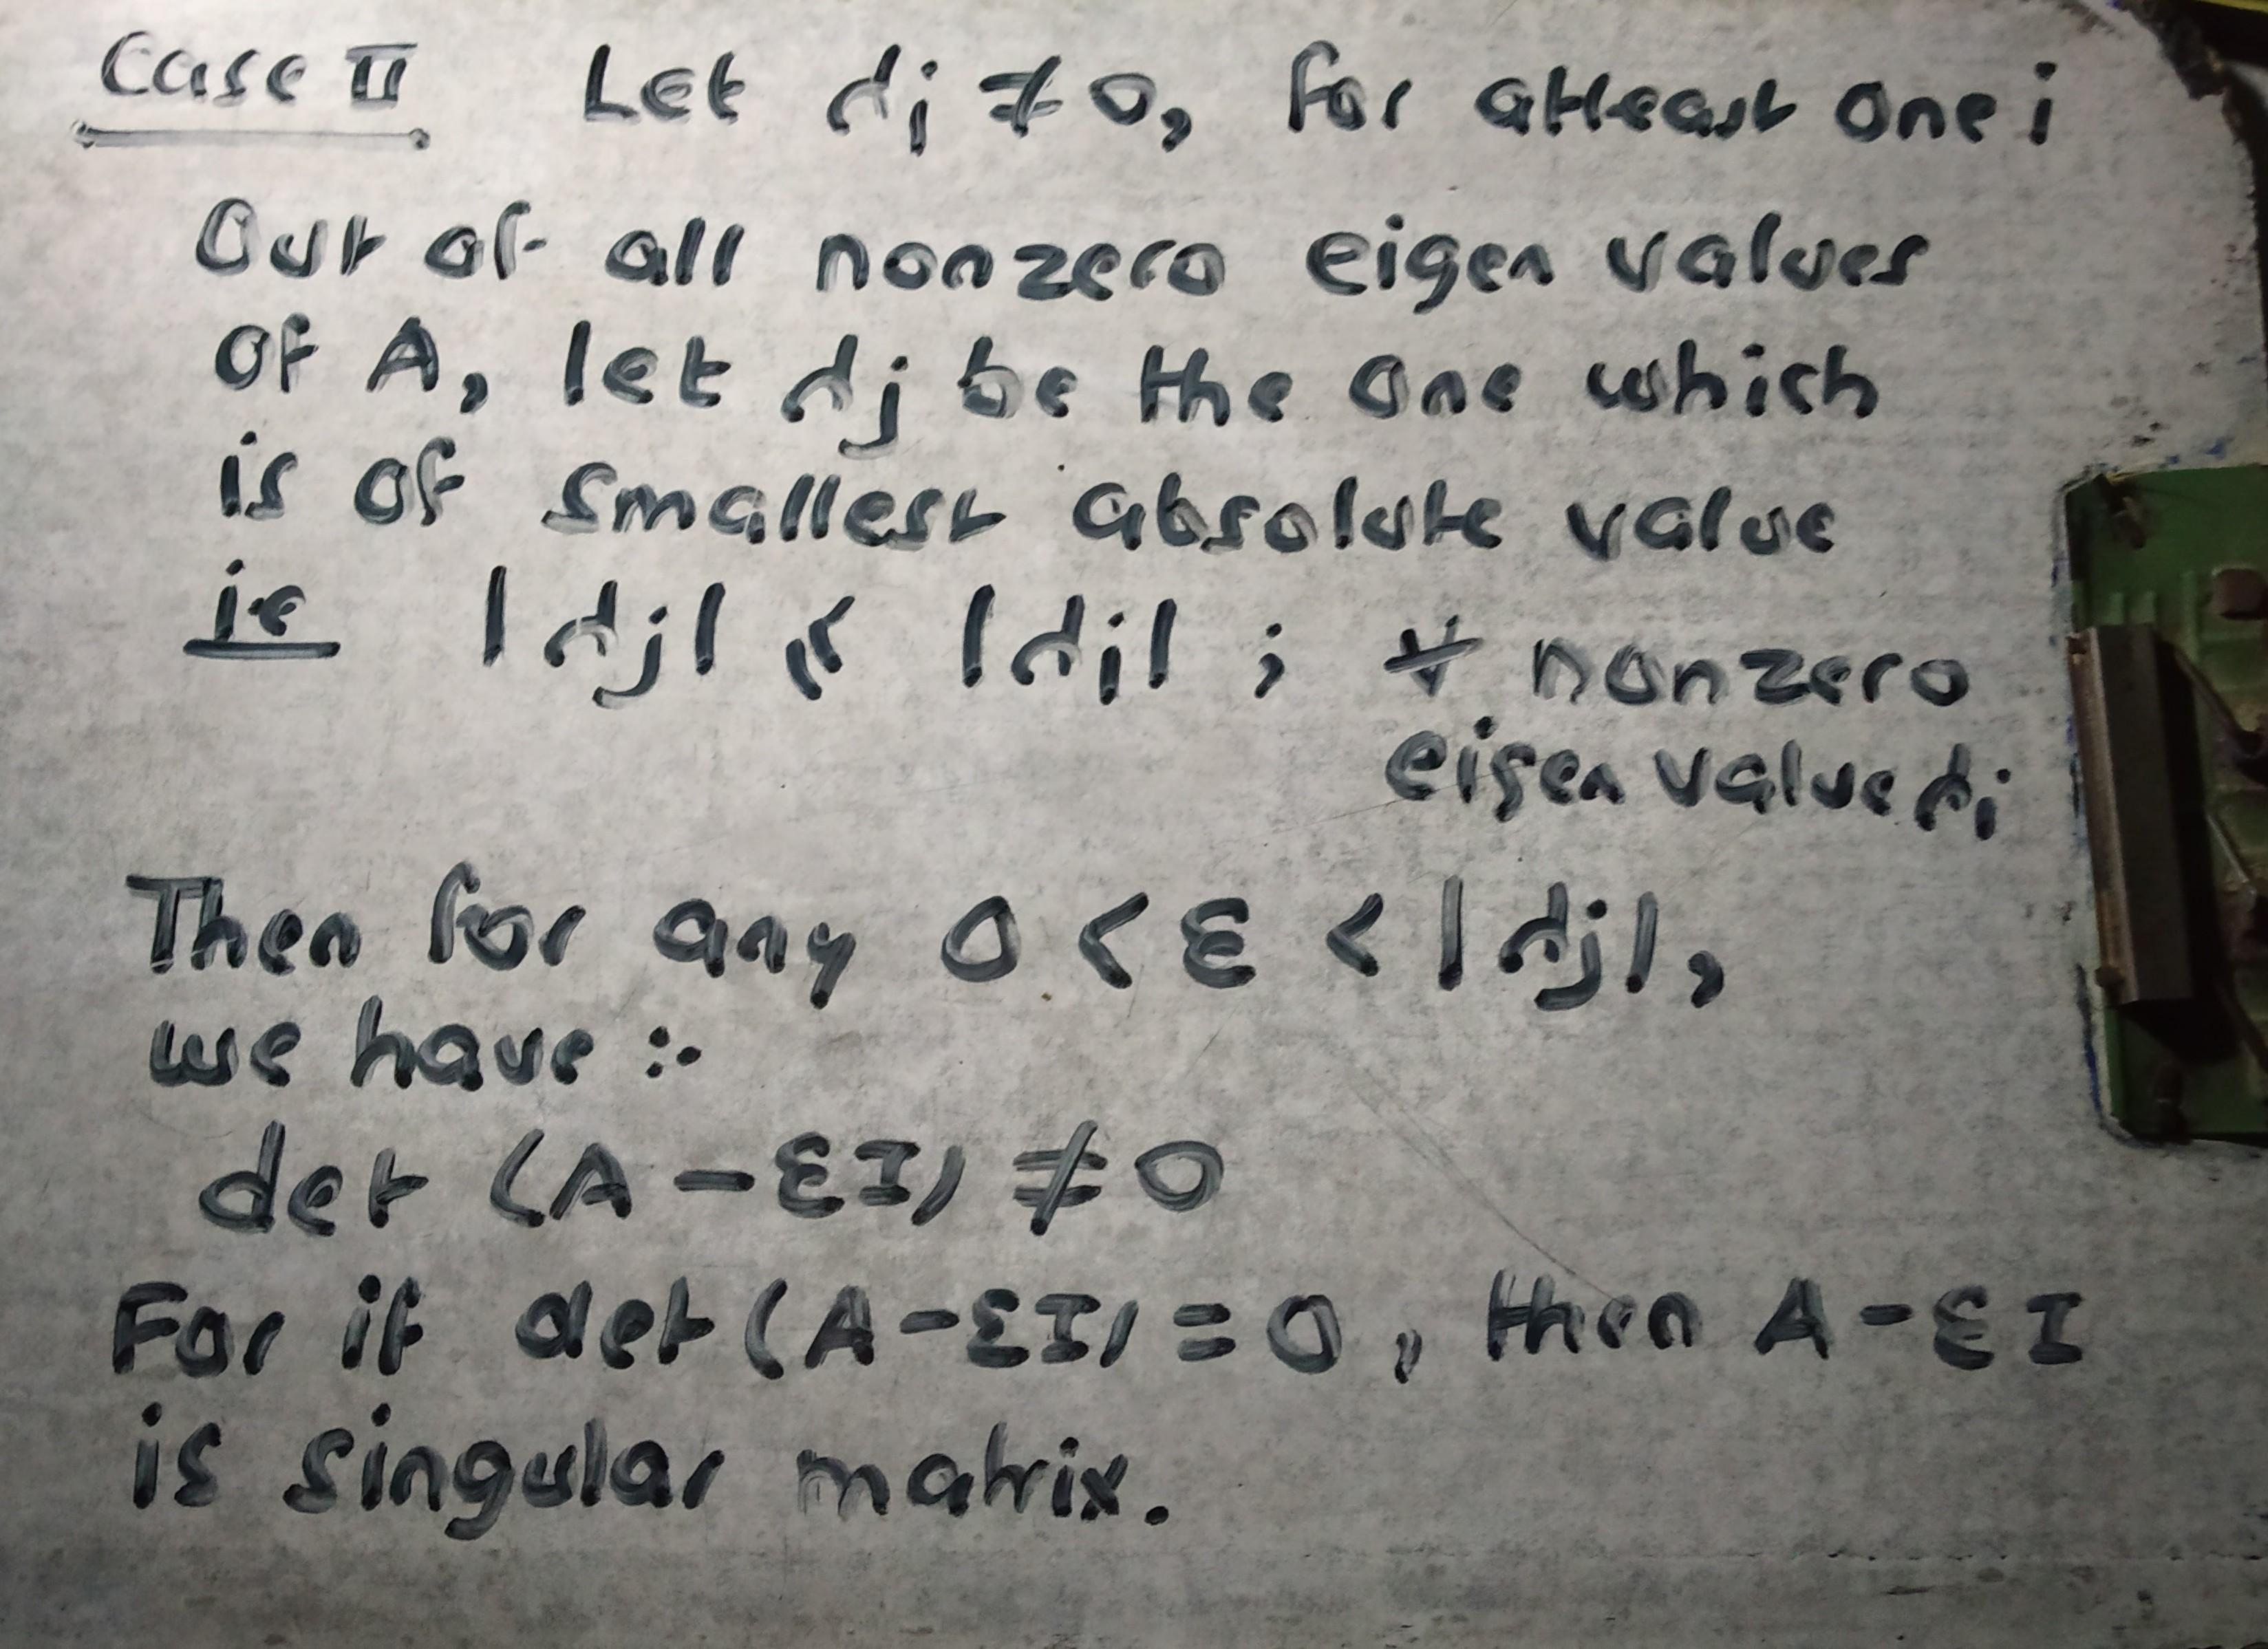 Case II Let λi ≠ 0, for atleast one i
Out of all nonzero eigen values
of A, let λj be the one which
is of smallest absolute value
ie |λj| ≤ |λi| ; ∀ nonzero
eigen value λi
Then for any 0 < ε < |λj|,
we have :-
det (A - εI) ≠ 0
For if det (A - εI) = 0, then A - εI
is singular matrix.